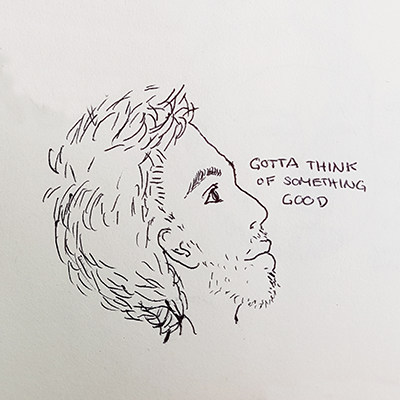 GOTTA THINK
OF SOMETHING
GOOD